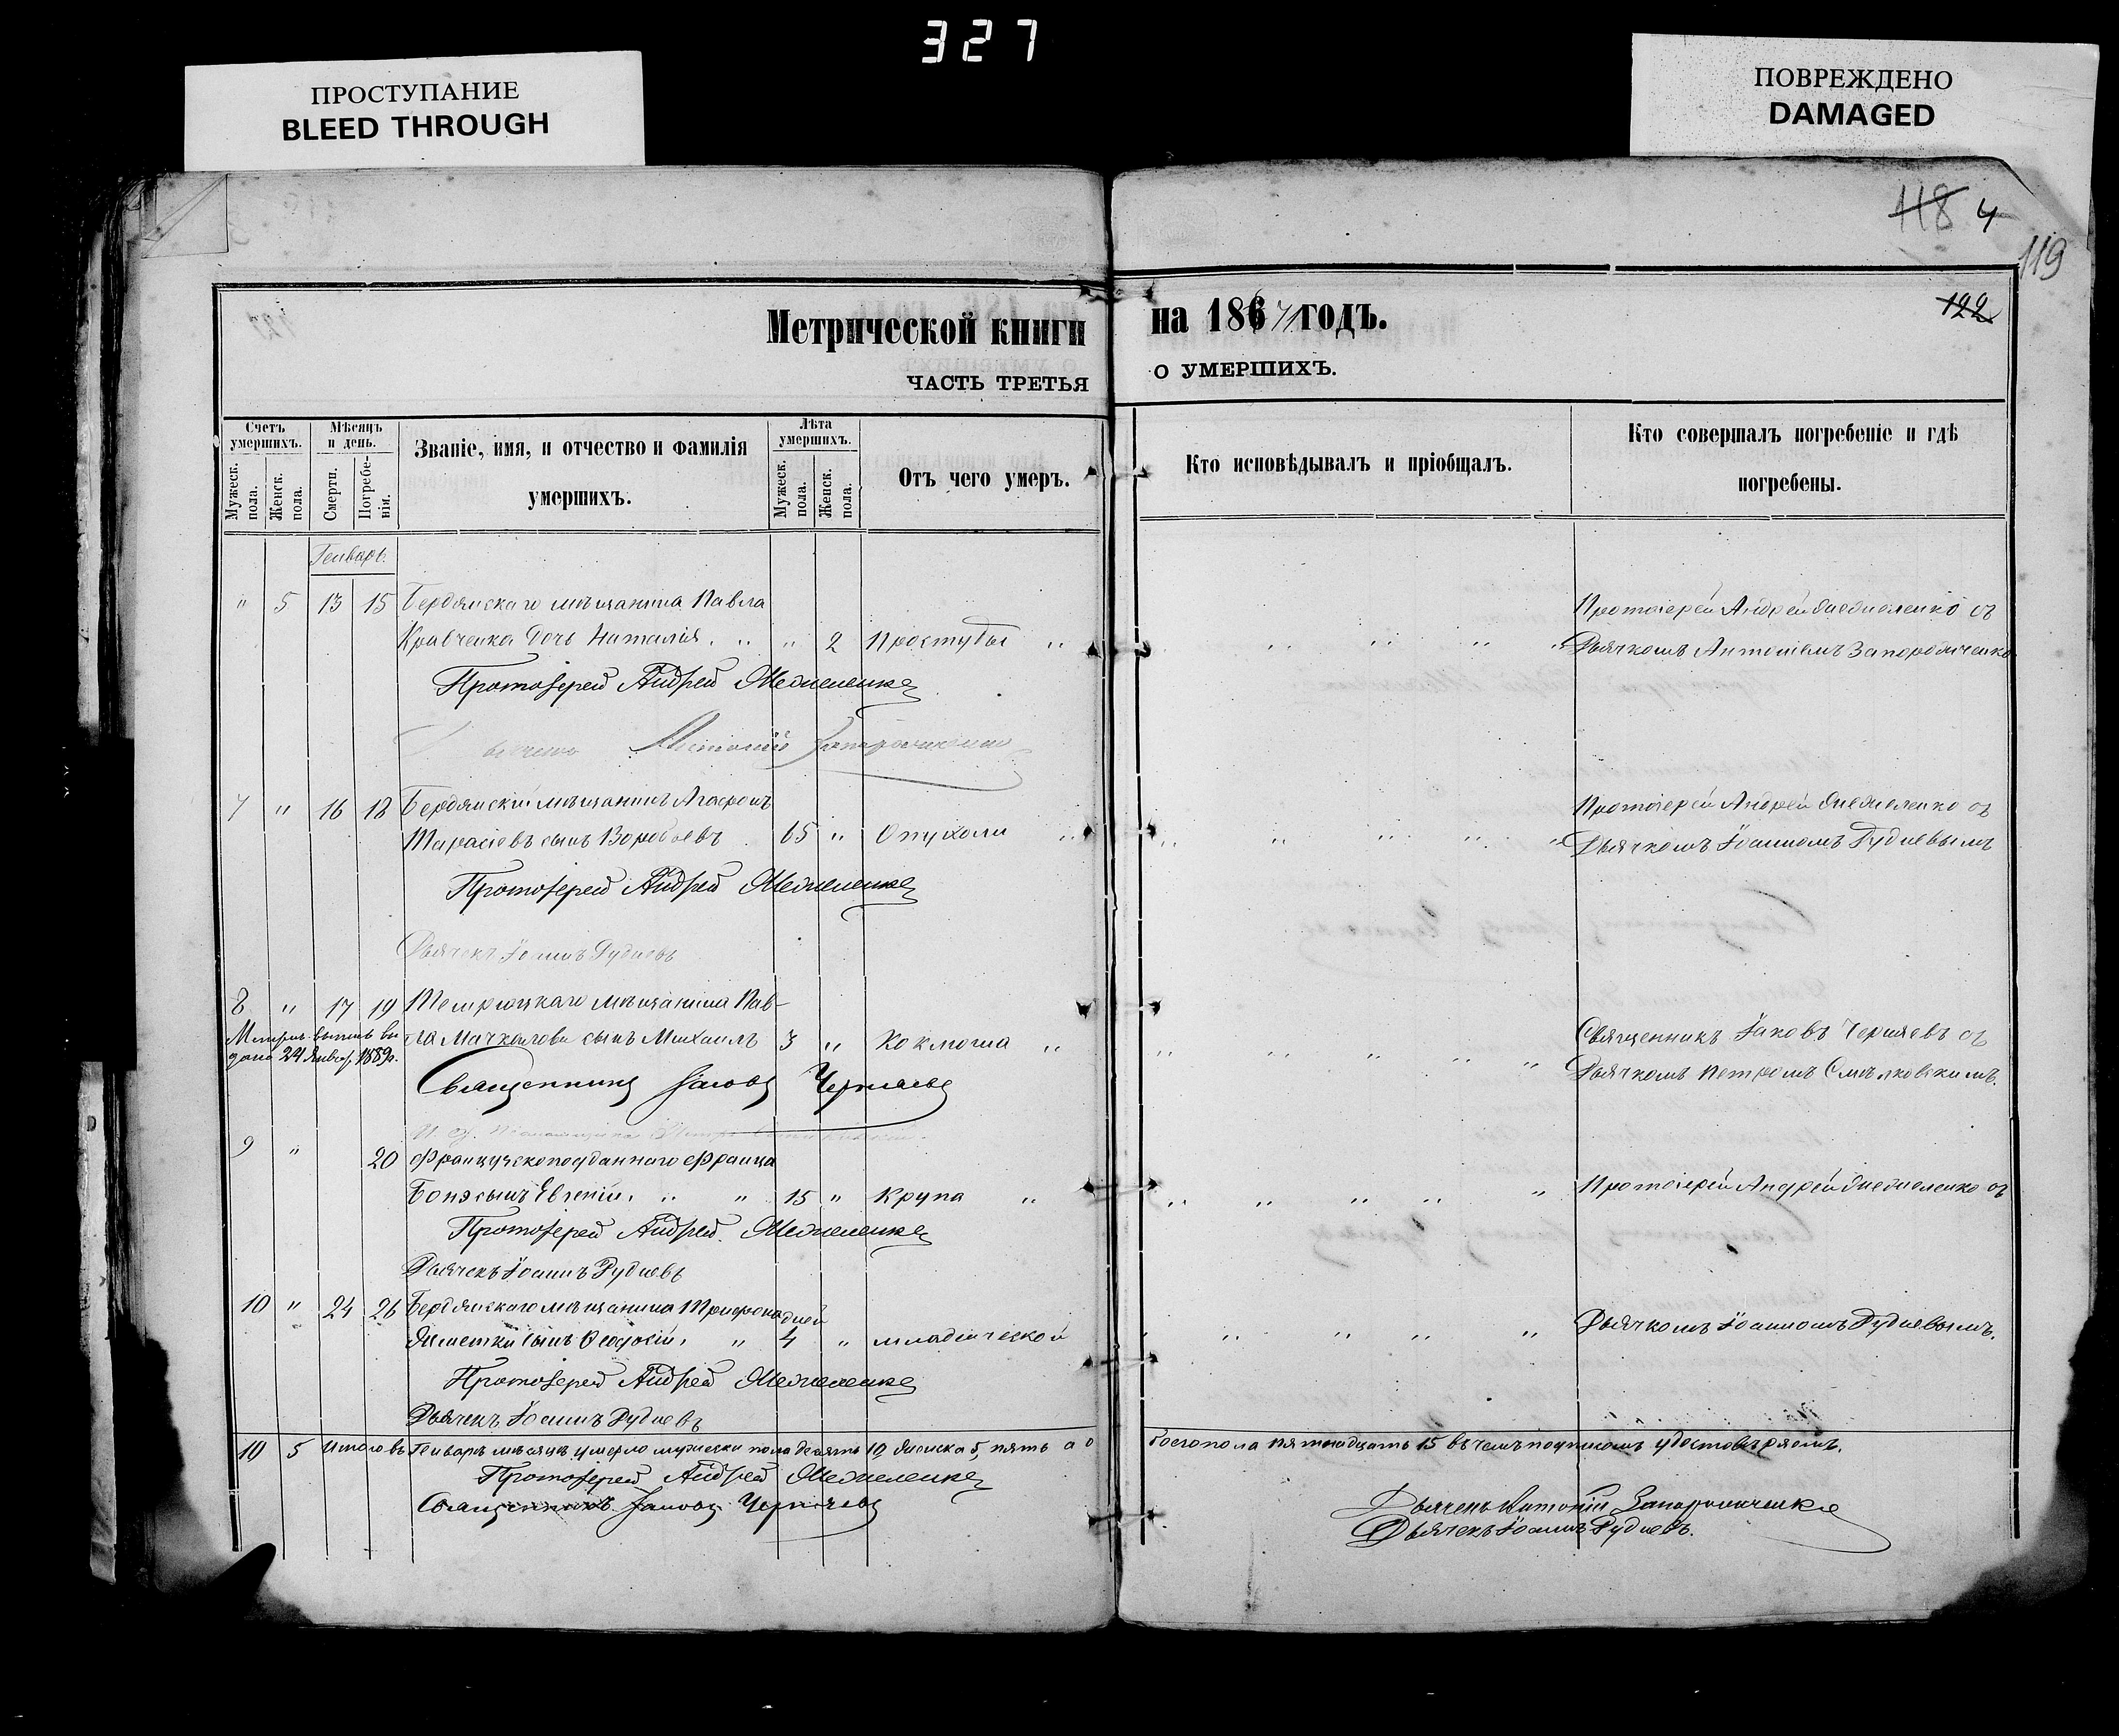 327
ПРОСТУПАНИЕ
BLEED THROUGH
ПОВРЕЖДЕНО
DAMAGED
118 4
119
122
Метрической книги на 1867/1 годъ.
ЧАСТЬ ТРЕТЬЯ О УМЕРШИХЪ.
Счетъ умершихъ.
Мужеск. пола.
Женск. пола.
Мѣсяцъ и день.
Смерти.
Погребенія.
Званіе, имя, и отчество и фамилія умершихъ.
Лѣта умершихъ.
Мужеск. пола.
Женск. пола.
Отъ чего умеръ.
Кто исповѣдывалъ и пріобщалъ.
Кто совершалъ погребеніе и гдѣ погребены.
Генварь.
" 5 13 15 Бердянскаго мѣщанина Павла
Кравченка дочь Наталія. " 2 Простуды
Протоіерей Андрей съ
Дьячкомъ Антоніемъ Запорожченко
Протоіерей Андрей
Антоній
7 " 16 18 Бердянскій мѣщанинъ
Тарасіевъ сынъ Воробьевъ 65 " Опухоли
Протоіерей Андрей съ
Дьячкомъ Іоанномъ Рудневымъ
Протоіерей Андрей
Дьячекъ Іоаннъ Рудневъ
8 " 17 19 Темрюцкаго мѣщанина Пав-
ла сынъ Михаилъ 3 " Коклюша
24 Январ. 1889г.
Священникъ Іаковъ Черняевъ съ
Дьячкомъ Петромъ
Священникъ Іаковъ Черняевъ
9 " 20 Французскоподданнаго Франца
сынъ Евгеній. " 15 " Крупа
Протоіерей Андрей съ
Протоіерей Андрей
Дьячекъ Іоаннъ Рудневъ
10 " 24 26 Бердянскаго мѣщанина Трифона
сынъ Ѳеодосій. " 4 дней " младенческой
Дьячкомъ Іоанномъ Рудневымъ.
Протоіерей Андрей
Дьячекъ Іоаннъ Рудневъ
10 5 Итого въ Генварѣ мѣсяцѣ умерло мужеска пола десять 10, женска 5, пять а о
боего пола пятнадцать 15 въ чемъ подписомъ удостовѣряемъ.
Протоіерей Андрей
Священникъ Іаковъ Черняевъ
Дьячекъ Антоній Запорожченко
Дьячекъ Іоаннъ Рудневъ.